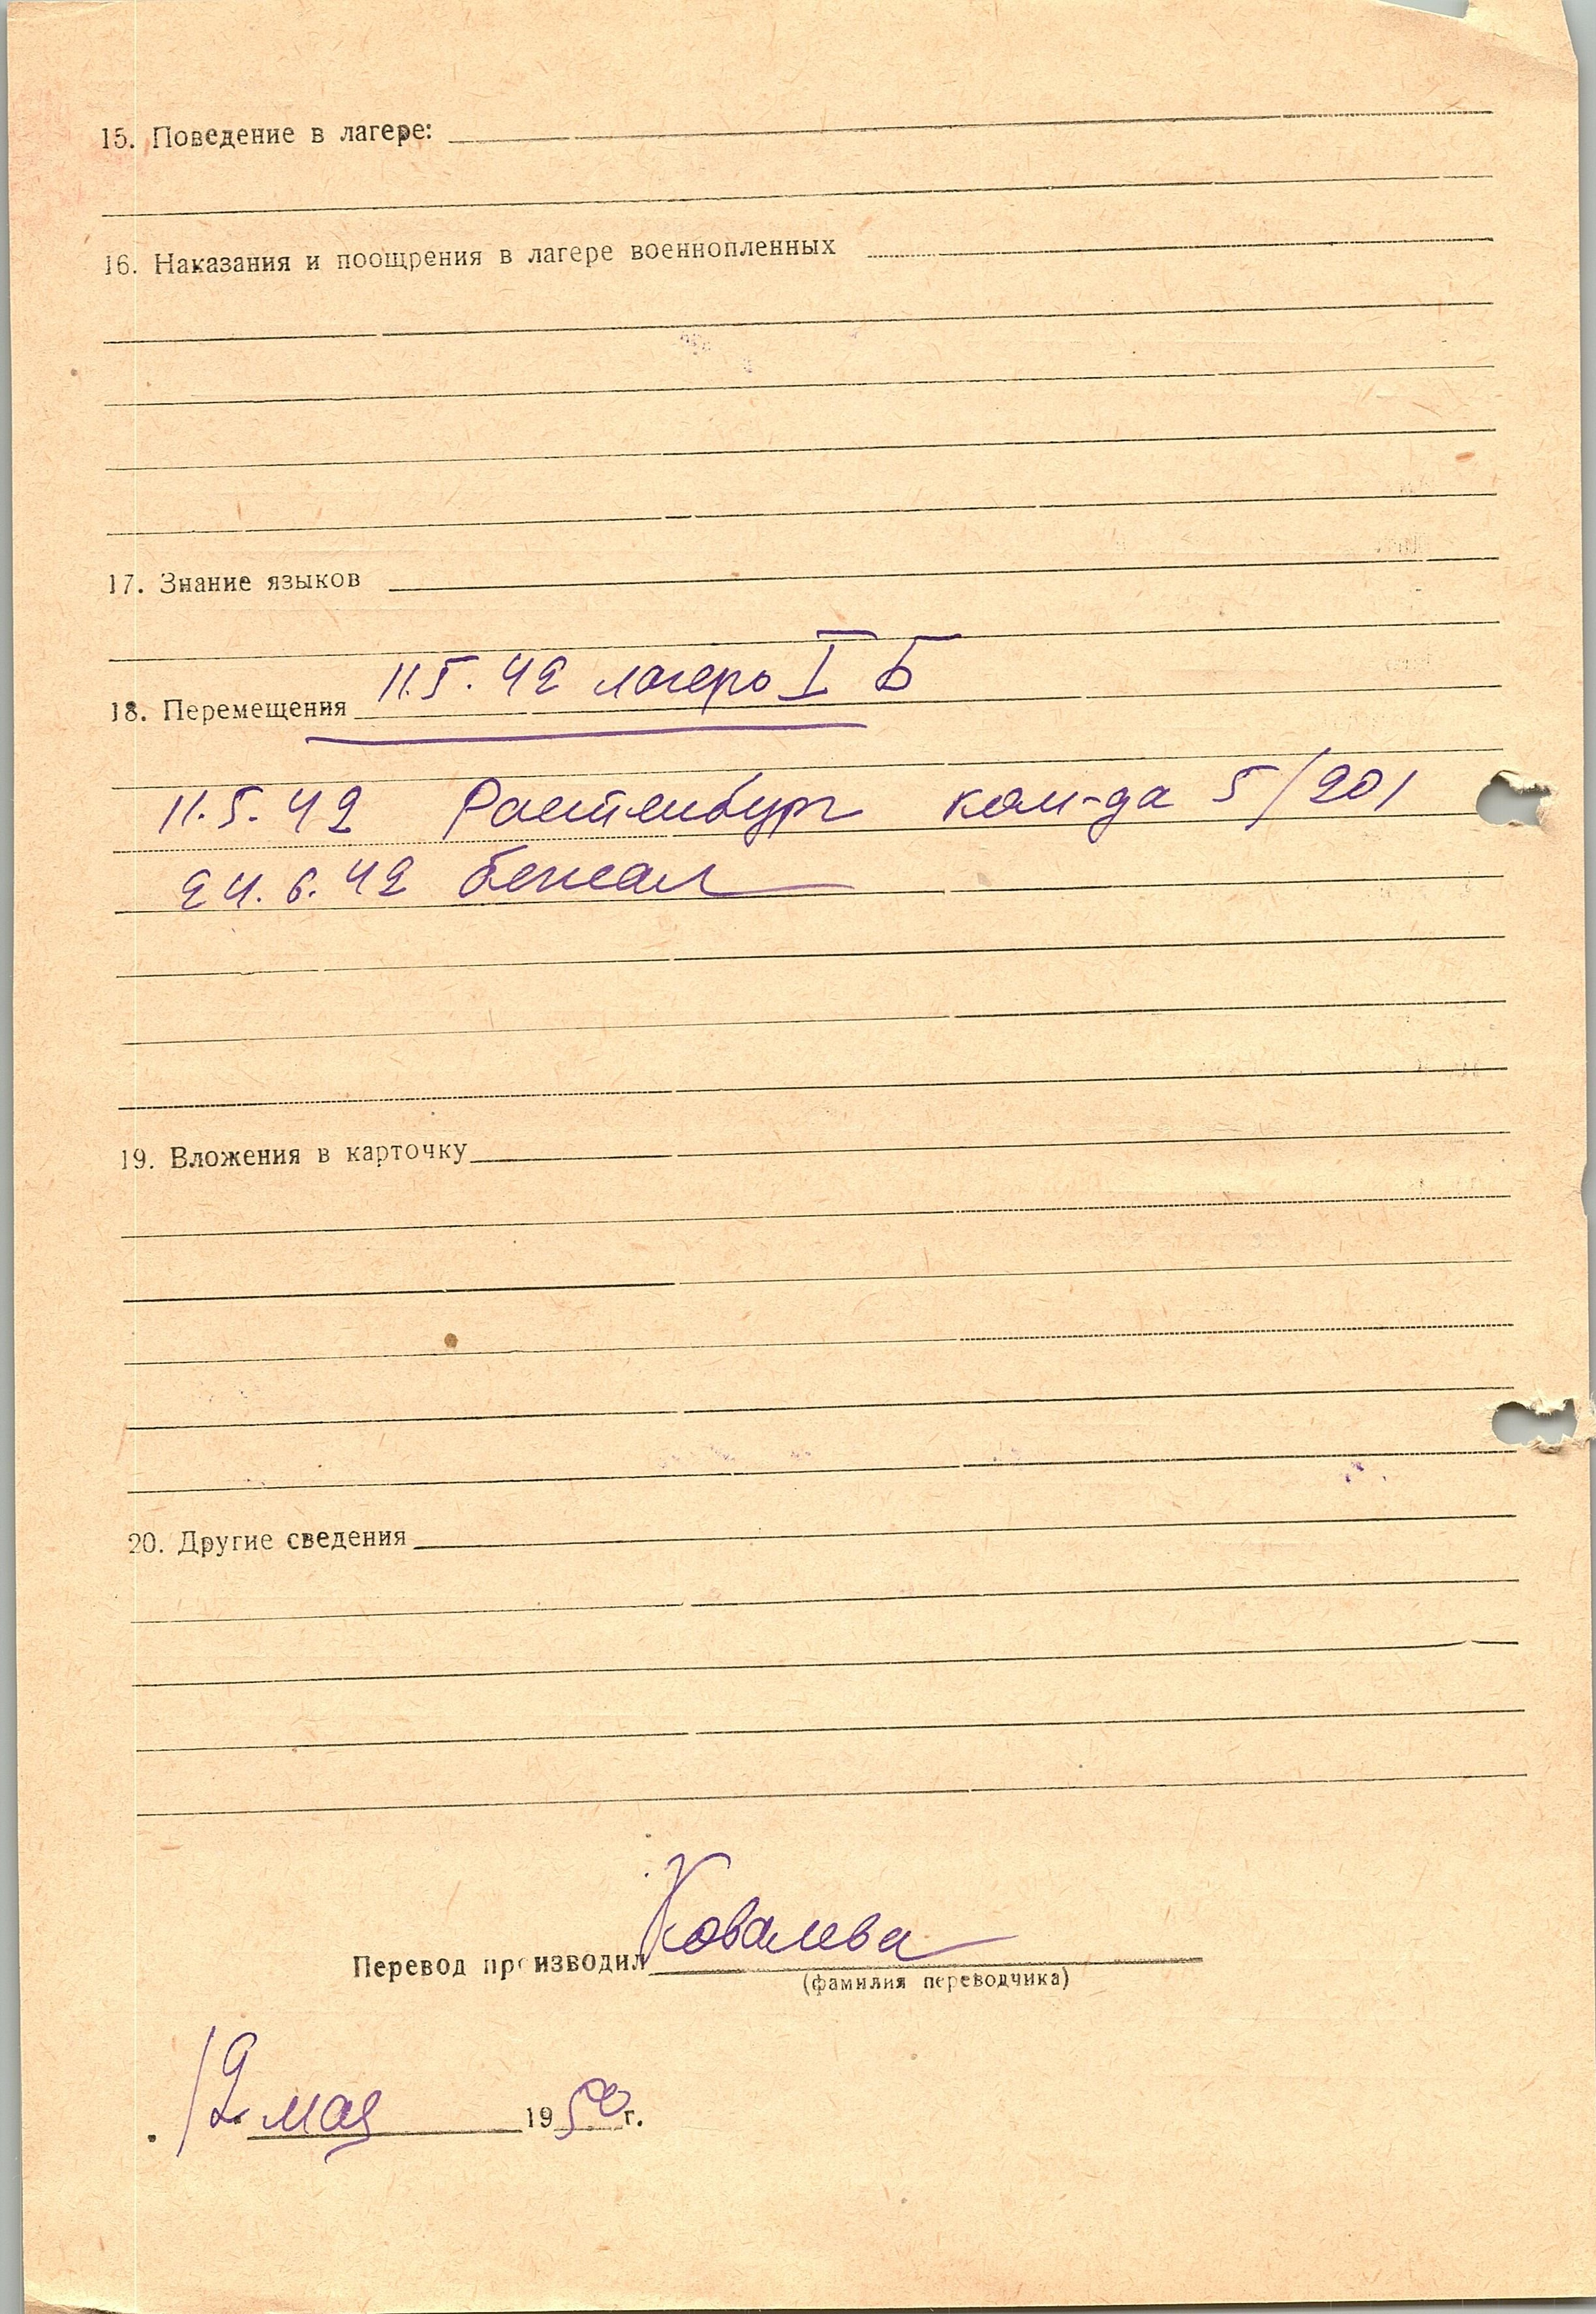 15. Поведение в лагере:
16. Наказания и поощрения в лагере военнопленных
17. Знание языков
18. Перемещения 11.5.42 лагерь I Б
11.5.42 Растенбург ком-да 5/201
24.6.42 бежал
19. Вложения в карточку
20. Другие сведения
Перевод производил Ковалева
(фамилия переводчика)
12 мая 1950 г.